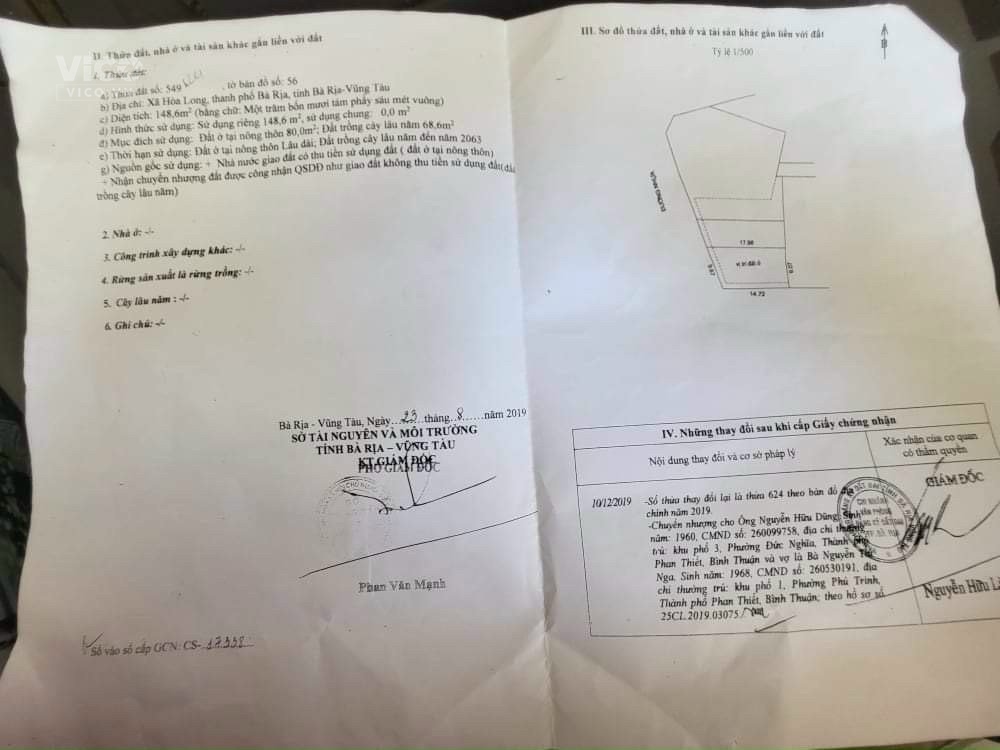 II. Thửa đất, nhà ở và tài sản khác gắn liền với đất
1. Thửa đất:
a) Thửa đất số: 549 , tờ bản đồ số: 56
b) Địa chỉ: Xã Hòa Long, thành phố Bà Rịa, tỉnh Bà Rịa-Vũng Tàu
c) Diện tích: 148,6m² (bằng chữ: Một trăm bốn mươi tám phẩy sáu mét vuông)
d) Hình thức sử dụng: Sử dụng riêng 148,6 m², sử dụng chung: 0,0 m²
đ) Mục đích sử dụng: Đất ở tại nông thôn 80,0m²; Đất trồng cây lâu năm 68,6m²
e) Thời hạn sử dụng: Đất ở tại nông thôn Lâu dài; Đất trồng cây lâu năm đến năm 2063
g) Nguồn gốc sử dụng: + Nhà nước giao đất có thu tiền sử dụng đất ( đất ở tại nông thôn)
+ Nhận chuyển nhượng đất được công nhận QSDĐ như giao đất không thu tiền sử dụng đất( đất
trồng cây lâu năm)
2. Nhà ở: -/-
3. Công trình xây dựng khác: -/-
4. Rừng sản xuất là rừng trồng: -/-
5. Cây lâu năm : -/-
6. Ghi chú: -/-
Bà Rịa - Vũng Tàu, Ngày...23...tháng..8......năm 2019
SỞ TÀI NGUYÊN VÀ MÔI TRƯỜNG
TỈNH BÀ RỊA – VŨNG TÀU
KT.GIÁM ĐỐC
PHÓ GIÁM ĐỐC
Phan Văn Mạnh
Số vào sổ cấp GCN: CS-17338
III. Sơ đồ thửa đất, nhà ở và tài sản khác gắn liền với đất
Tỷ lệ 1/500
ĐƯỜNG NHỰA
17.96
14.72
IV. Những thay đổi sau khi cấp Giấy chứng nhận
Nội dung thay đổi và cơ sở pháp lý
Xác nhận của cơ quan
có thẩm quyền
10/12/2019 -Số thửa thay đổi lại là thửa 624 theo bản đồ
chỉnh năm 2019.
-Chuyển nhượng cho Ông Nguyễn Hữu Dũng, Sinh
năm: 1960, CMND số: 260099758, địa chỉ thường
trú: khu phố 3, Phường Đức Nghĩa, Thành phố
Phan Thiết, Bình Thuận và vợ là Bà Nguyễn Thị
Nga. Sinh năm: 1968, CMND số: 260530191, địa
chỉ thường trú: khu phố 1, Phường Phú Trinh,
Thành phố Phan Thiết, Bình Thuận; theo hồ sơ số
25CL.2019.03075.
GIÁM ĐỐC
Nguyễn Hữu